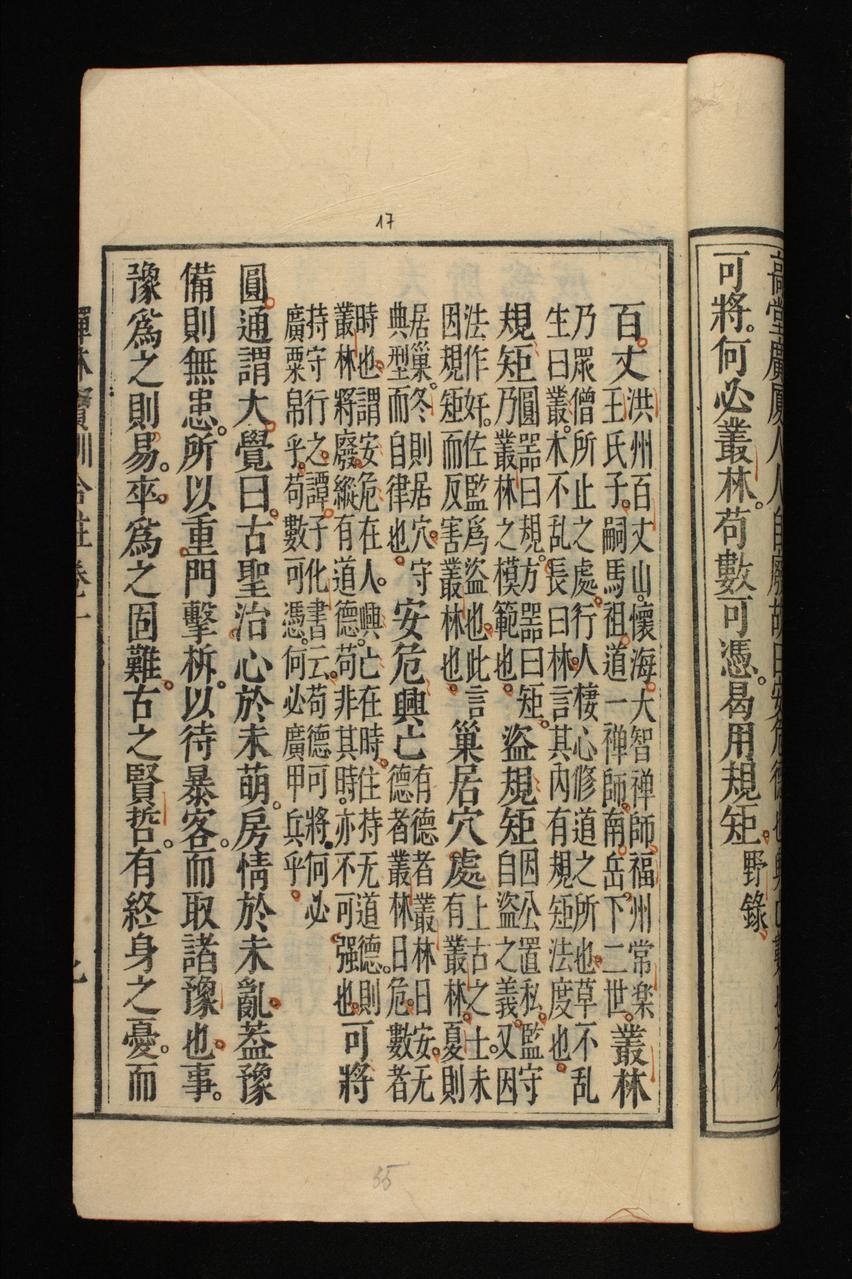 高堂廣厦人人自廢故曰安危德也
可將。何必叢林。苟數可憑。曷用規矩。野錄
百丈洪州百丈山。懷海。大智禪師。福州常楽
王氏子。嗣馬祖。道一禅師。南岳下二世。叢林
乃眾僧所止之處。行人棲心修道之所也。草不乱
生曰叢。木不乱。長曰林。言其内有規矩法度也。
規矩圓器曰規。方器曰矩。
乃叢林之模範也。盗規矩因公置私。監守
自盗之義。又因
法作奸。佐監爲盗也。此言
因規矩而反害叢林也。巢居穴處上古之士未
有叢林。夏則
居巢。冬則居穴。守
典型而自律也。安危興亡有德者叢林日安。无
德者叢林日危。數者
時也。謂安危在人。興亡在時。住持无道德。則
叢林將廢。縱有道德。苟非其時。亦不可强也。可將
持守行之。譚子化書云。苟德可將。何必
廣粟帛乎。苟數可憑。何必廣甲兵乎。
圓通謂大覺曰。古聖治心於未萌。房情於未亂。葢豫
備則無患。所以重門擊柝。以待暴客。而取諸豫也。事。
豫爲之則易。卒爲之固難。古之賢哲。有終身之憂。而
17
55